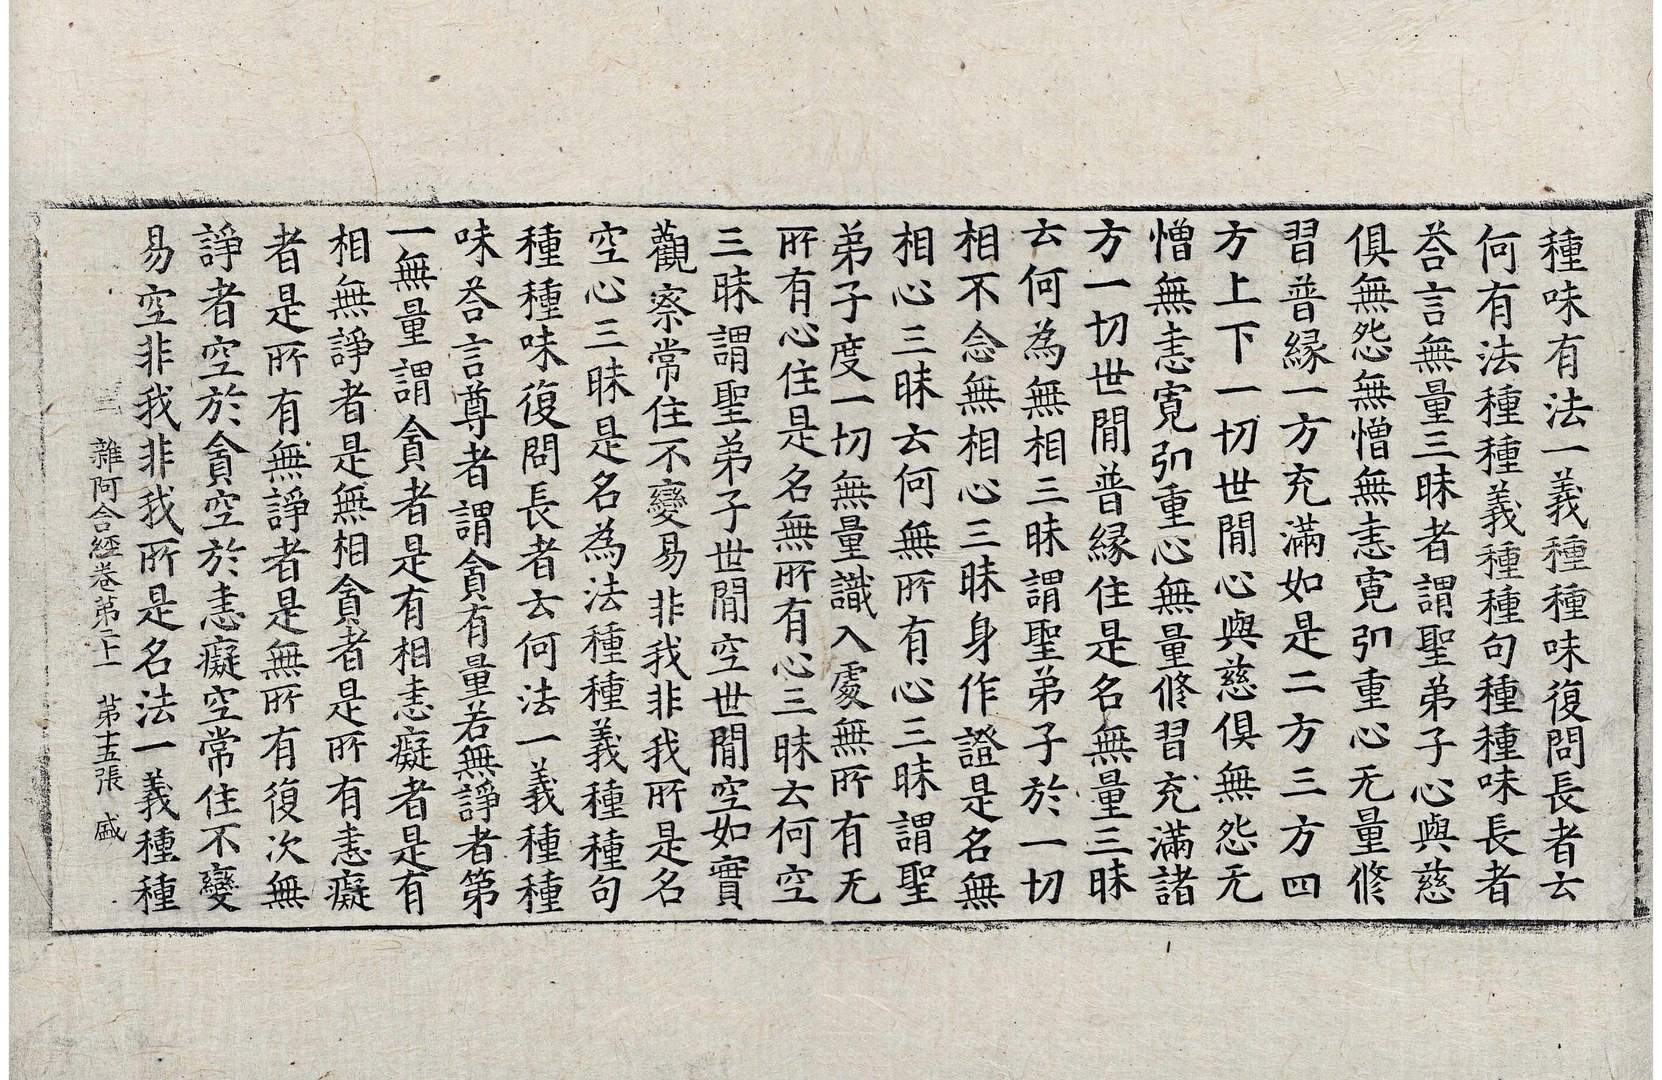 種味有法一義種種味復問長者云
何有法種種義種種句種種味長者
荅言無量三昧者謂聖弟子心與慈
俱無怨無憎無恚寛弘重心无量修
習普縁一方充滿如是二方三方四
方上下一切世間心與慈俱無怨无
憎無恚寛弘重心無量修習充滿諸
方一切世間普縁住是名無量三昧
云何為無相三昧謂聖弟子於一切
相不念無相心三昧身作證是名無
相心三昧云何無所有心三昧謂聖
弟子度一切無量識入處無所有无
所有心住是名無所有心三昧云何空
三昧謂聖弟子世間空世間空如實
觀察常住不變易非我非我所是名
空心三昧是名為法種種義種種句
種種味復問長者云何法一義種種
味荅言尊者謂貪有量若無諍者第
一無量謂貪者是有相恚癡者是有
相無諍者是無相貪者是所有恚癡
者是所有無諍者是無所有復次無
諍者空於貪空於恚癡空常住不變
易空非我非我所是名法一義種種
雜阿含經卷第二十一 第十五張 盛